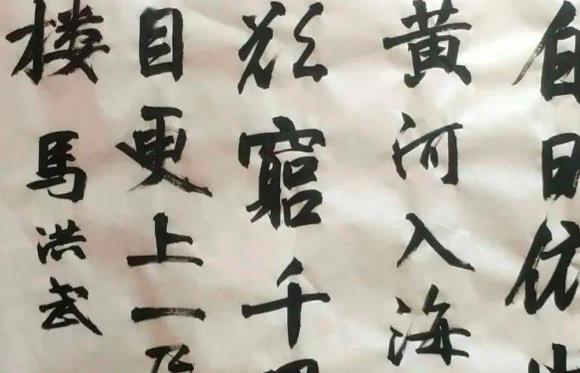 白日依
黄河入海
欲窮千
目更上一
楼
馬洪武